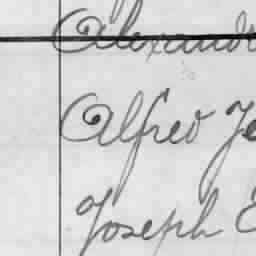 Alexand
Alfred Je
Joseph E